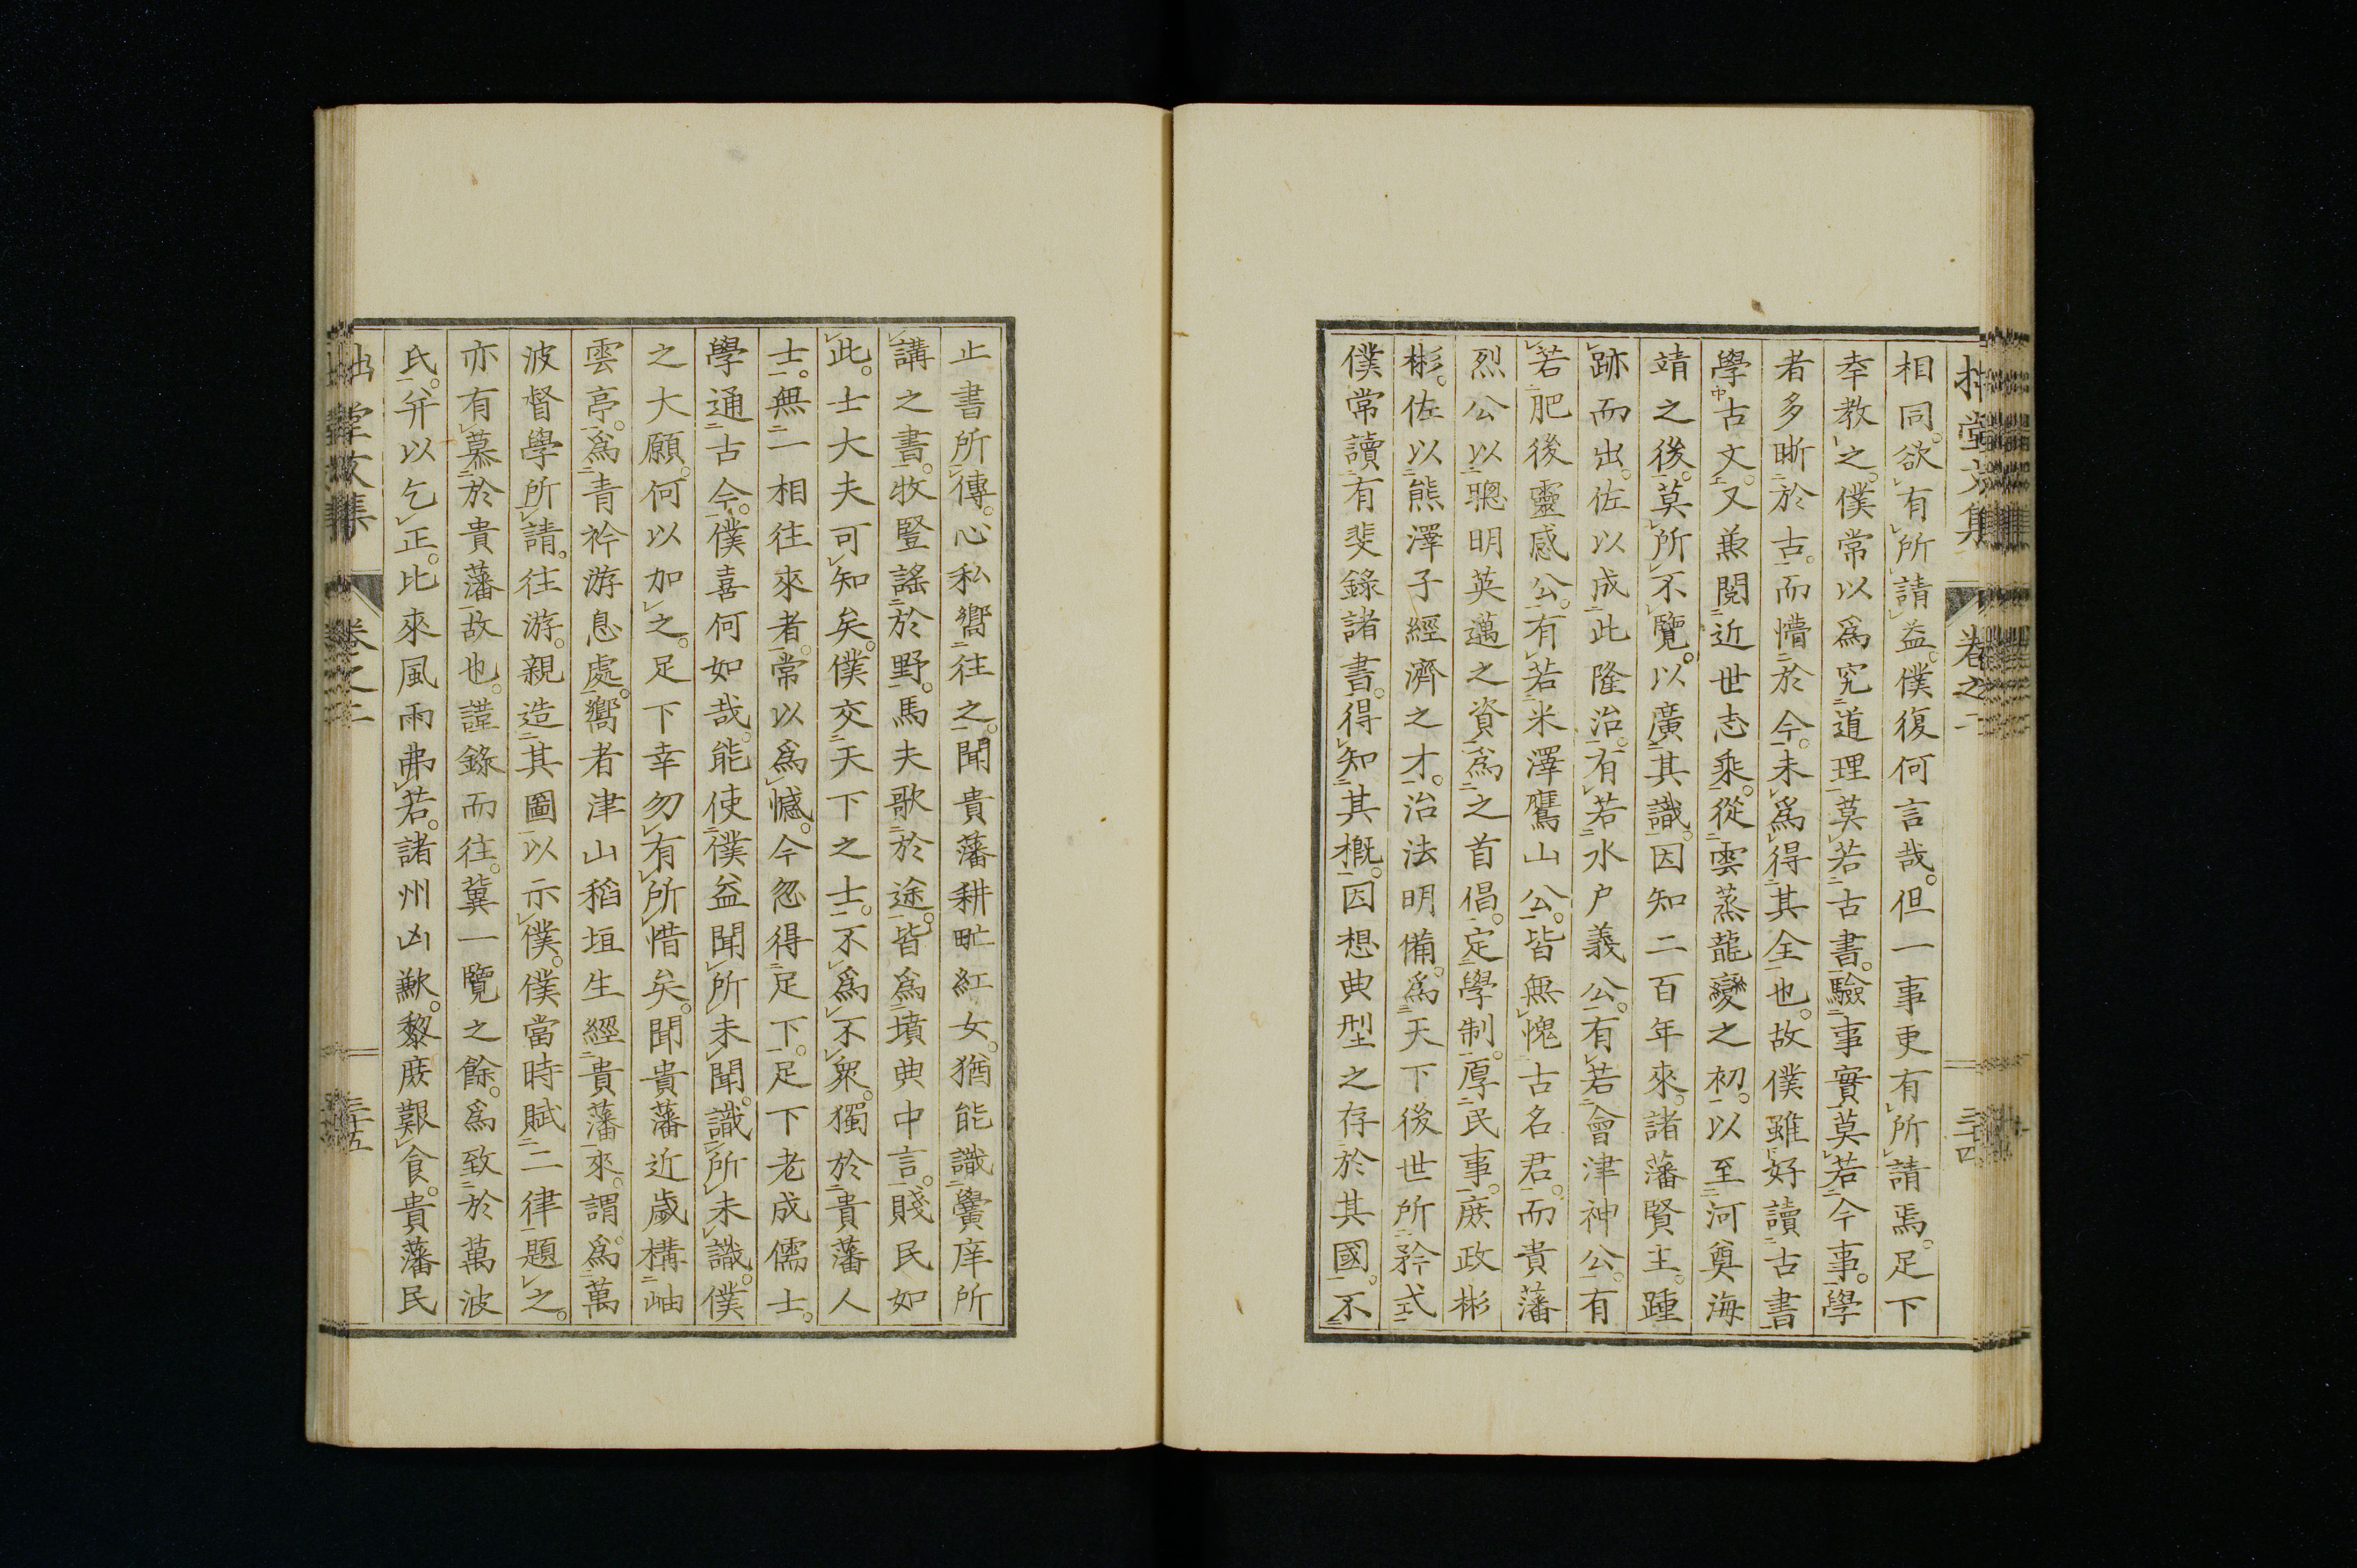 相同。欲有所請益。僕復何言哉。但一事更有所請焉。足下
幸教之。僕常以爲究道理莫若古書。驗事實莫若今事。學
者多晣於古。而懵於今。未爲得其全也。故僕雖好讀古書
學古文。又兼閱近世志乘。從雲蒸龍變之初。以至河奠海
靖之後。莫所不覽。以廣其識。因知二百年來。諸藩賢主。踵
跡而出。佐以成此隆治。有若水戶義公。有若會津神公。有
若肥後靈感公。有若米澤鷹山公。皆無愧古名君。而貴藩
烈公以聰明英邁之資。爲之首倡。定學制。厚民事。庶政彬
彬。佐以熊澤子經濟之才。治法明備。爲天下後世所矜式
僕常讀有斐錄諸書。得知其概。因想典型之存於其國。不
止書所傳。心私嚮往之。聞貴藩耕甿紅女。猶能識黌庠所
講之書。牧豎謠於野。馬夫歌於途。皆爲墳典中言。賤民如
此。士大夫可知矣。僕交天下之士。不爲不衆。獨於貴藩人
士。無一相往來者。常以爲憾。今忽得足下。足下老成儒士。
學通古今。僕喜何如哉。能使僕益聞所未聞。識所未識。僕
之大願。何以加之。足下幸勿有所惜矣。聞貴藩近歲構岫
雲亭。爲青衿游息處。嚮者津山稻垣生經貴藩來。謂爲萬
波督學所請。往游。親造其圖以示僕。僕當時賦二律題之。
亦有慕於貴藩故也。謹錄而往。冀一覽之餘。爲致於萬波
氏。幷以乞正。比來風雨弗若。諸州凶歉。黎庶艱食。貴藩民